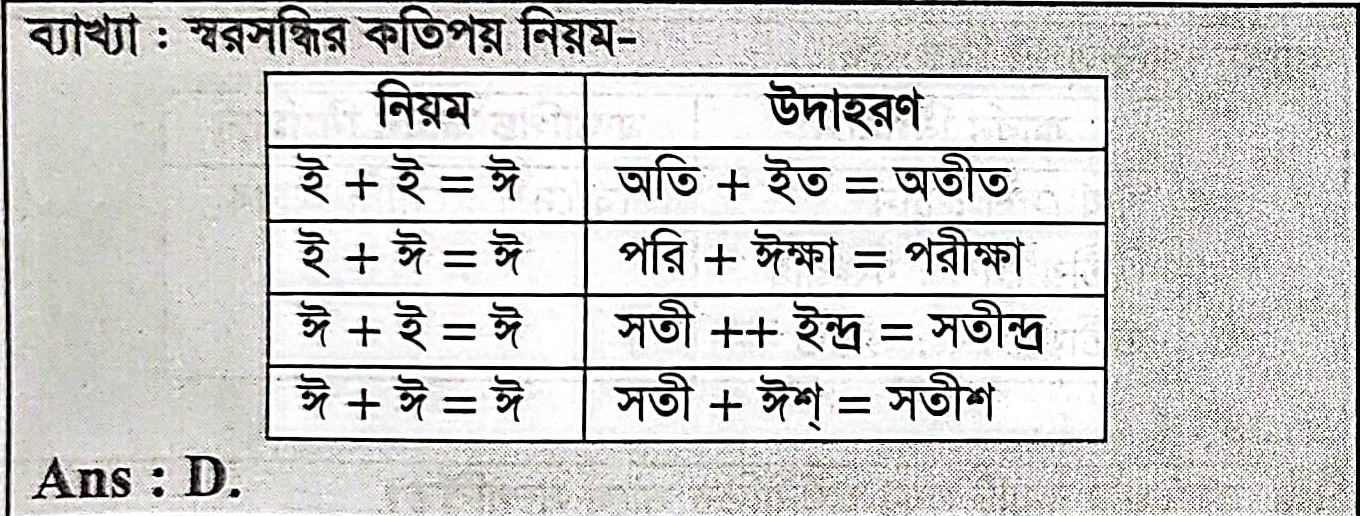 ব্যাখ্যা : স্বরসন্ধির কতিপয় নিয়ম-
নিয়ম উদাহরণ
ই + ই = ঈ অতি + ইত = অতীত
ই + ঈ = ঈ পরি + ঈক্ষা = পরীক্ষা
ঈ + ই = ঈ সতী ++ ইন্দ্র = সতীন্দ্র
ঈ + ঈ = ঈ সতী + ঈশ্ = সতীশ
Ans : D.